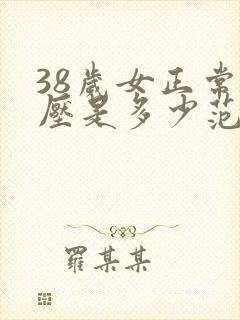 38歲女正常
壓是多少范
羅某某